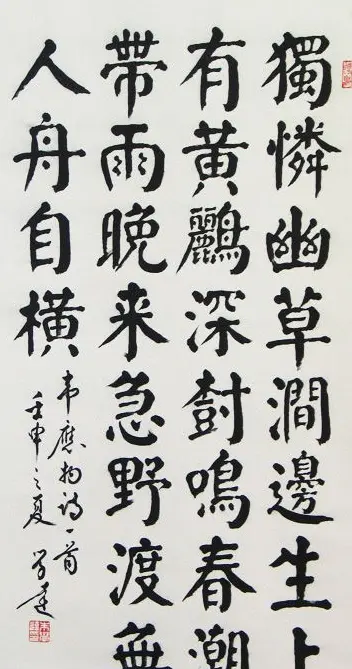 獨憐幽草澗邊生上
有黄鸝深樹鳴春潮
帶雨晚来急野渡無
人舟自橫
韦應物诗一首
壬申之夏